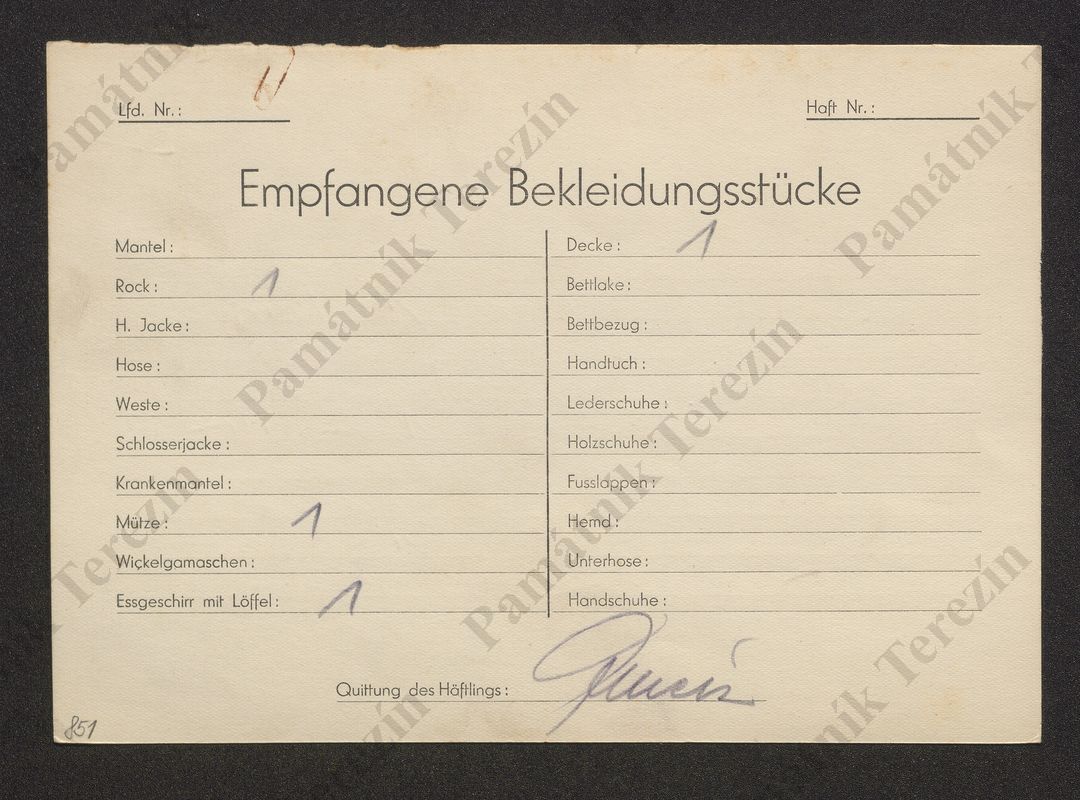 Lfd. Nr.:
Haft Nr.:
Empfangene Bekleidungsstücke
Mantel:
Rock: 1
H. Jacke:
Hose:
Weste:
Schlosserjacke:
Krankenmantel:
Mütze: 1
Wickelgamaschen:
Essgeschirr mit Löffel: 1
Decke: 1
Bettlake:
Bettbezug:
Handtuch:
Lederschuhe:
Holzschuhe:
Fusslappen:
Hemd:
Unterhose:
Handschuhe:
Quittung des Häftlings:
851
Památník Terezín
Památník Terezín
Památník Terezín
Památník
Terezín